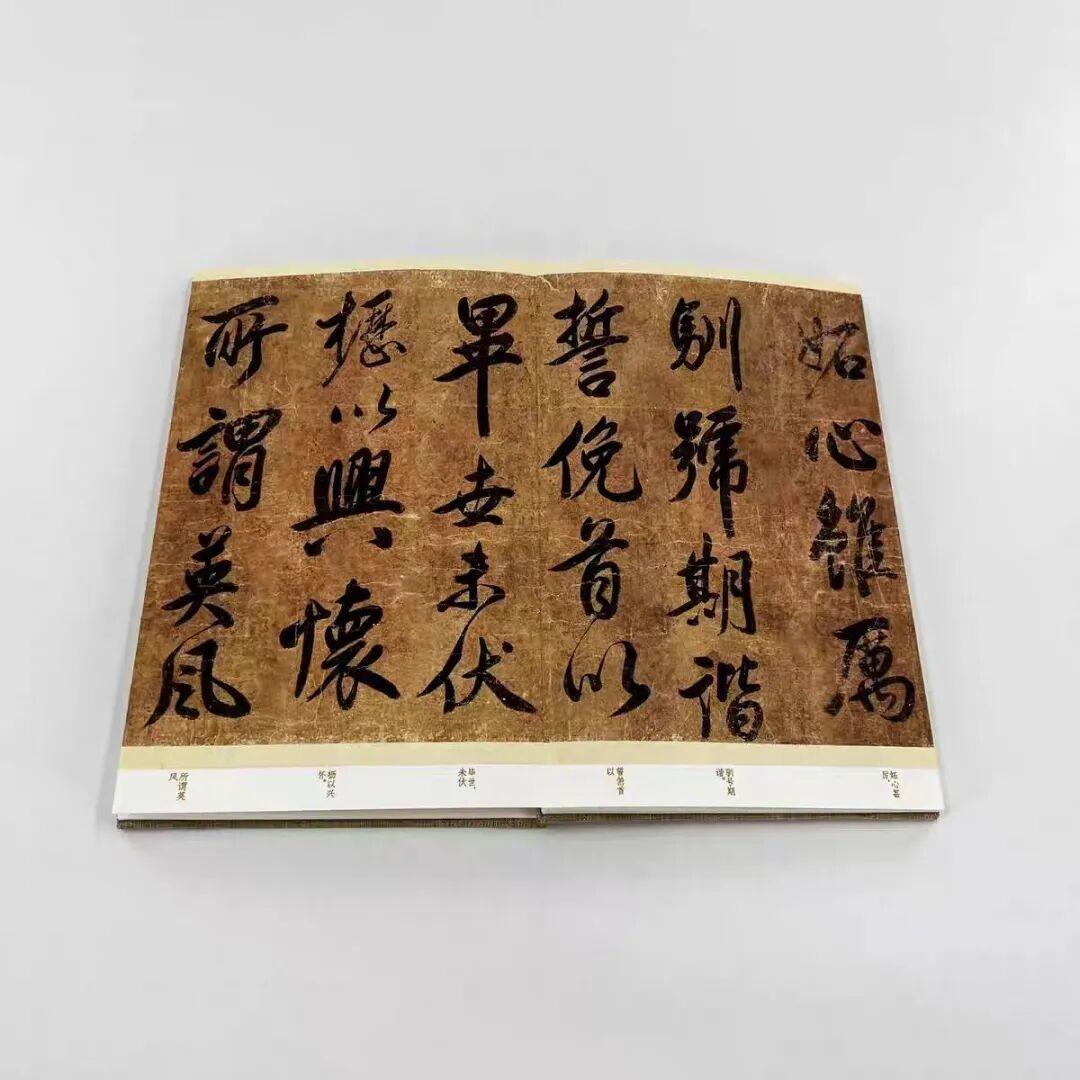 妬心雖厲
馴號期諧
誓俛首以
畢世未伏
櫪以興懷
所謂英風
妬心虽
厉，
驯号期
谐。
誓俛首
以
毕世，
未伏
枥以兴
怀。
所谓英
风